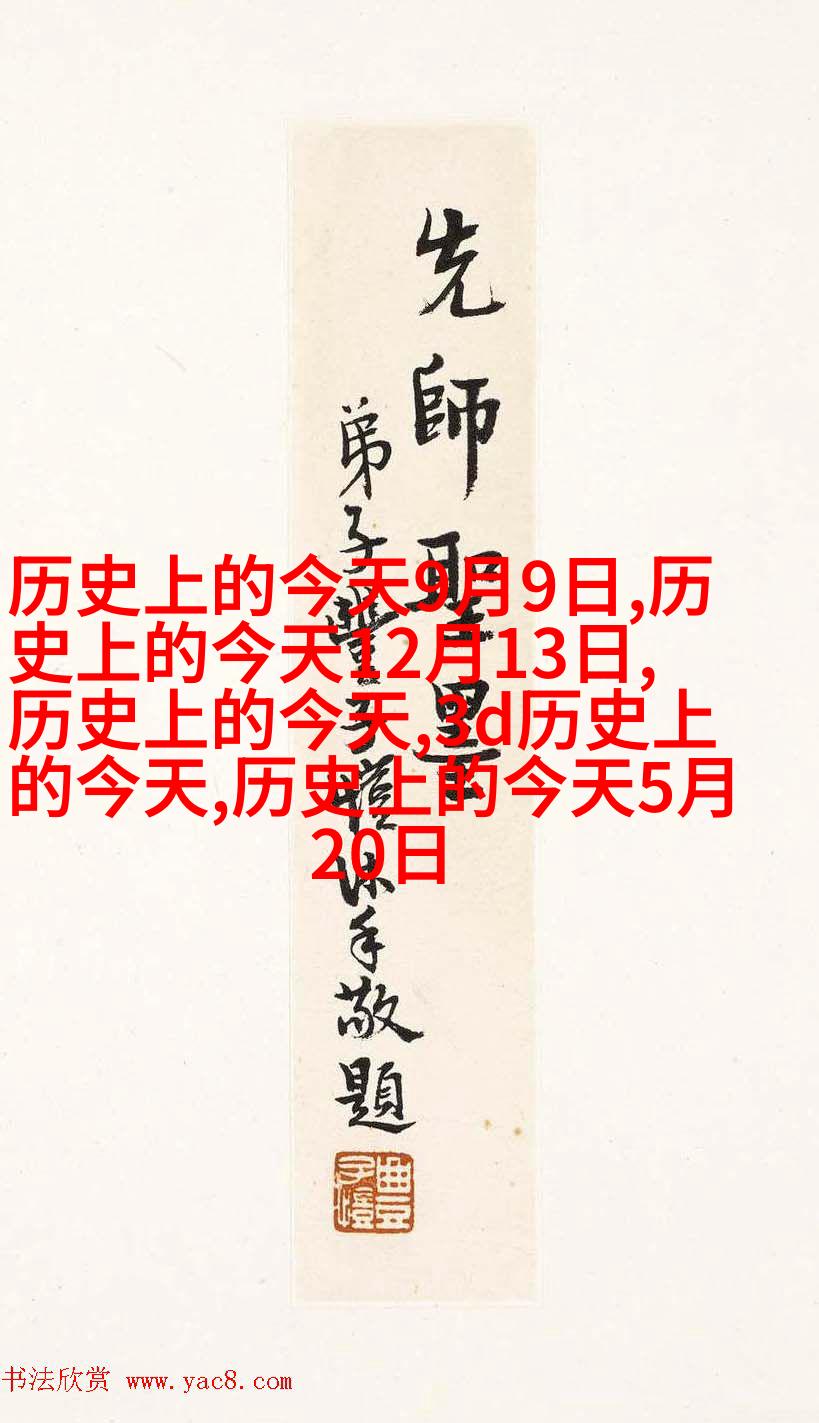 先師聖墨
弟子豐子愷沐手敬題
豐子愷
历史上的今天9月9日,历
史上的今天12月13日,
历史上的今天,3d历史上
的今天,历史上的今天5月
20日
书法欣赏 www.yac8.com